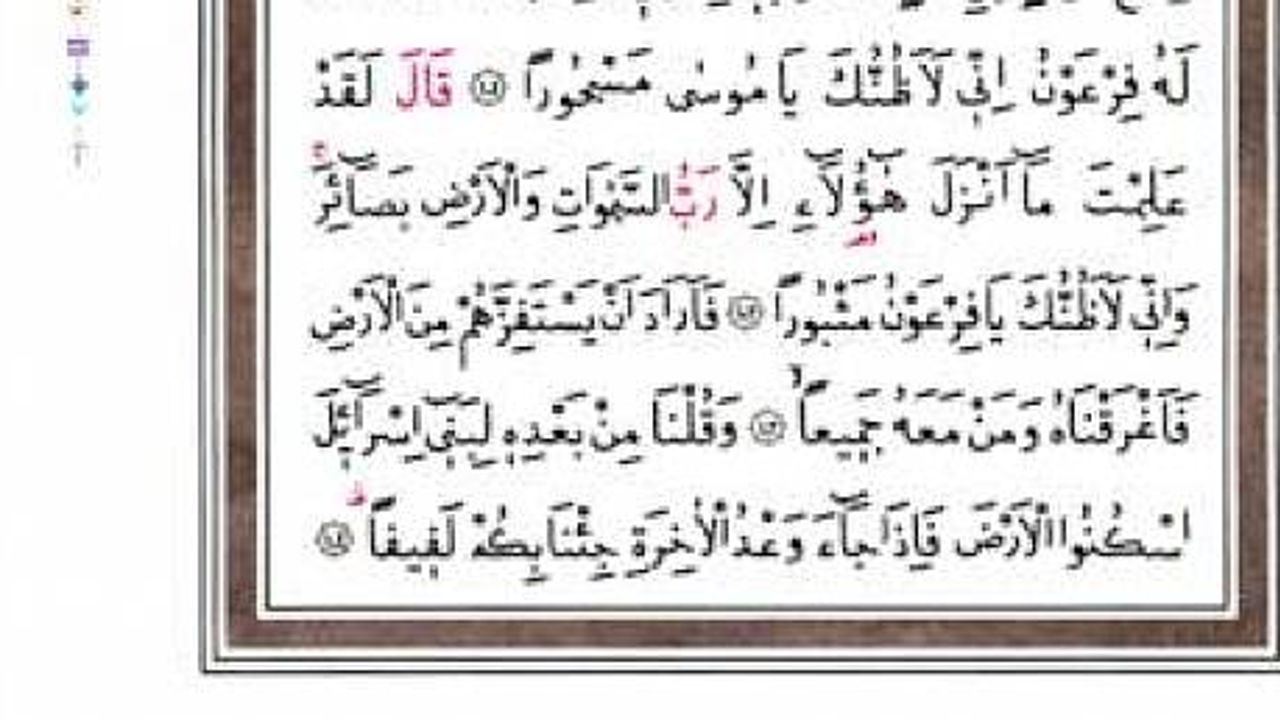 لَهُ فِرْعَوْنُ اِنّ۪ي لَاَظُنُّكَ يَا مُوسٰى مَسْحُورًا ﴿١٠١﴾ قَالَ لَقَدْ
عَلِمْتَ مَٓا اَنْزَلَ هٰٓؤُ۬لَٓاءِ اِلَّا رَبُّ السَّمٰوَاتِ وَالْاَرْضِ بَصَٓائِرَۚ
وَاِنّ۪ي لَاَظُنُّكَ يَا فِرْعَوْنُ مَثْبُورًا ﴿١٠٢﴾ فَاَرَادَ اَنْ يَسْتَفِزَّهُمْ مِنَ الْاَرْضِ
فَاَغْرَقْنَاهُ وَمَنْ مَعَهُ جَم۪يعًاۙ ﴿١٠٣﴾ وَقُلْنَا مِنْ بَعْدِه۪ لِبَن۪ٓي اِسْرَٓائ۪لَ
اسْكُنُوا الْاَرْضَ فَاِذَا جَٓاءَ وَعْدُ الْاٰخِرَةِ جِئْنَا بِكُمْ لَف۪يفًاۜ ﴿١٠٤﴾